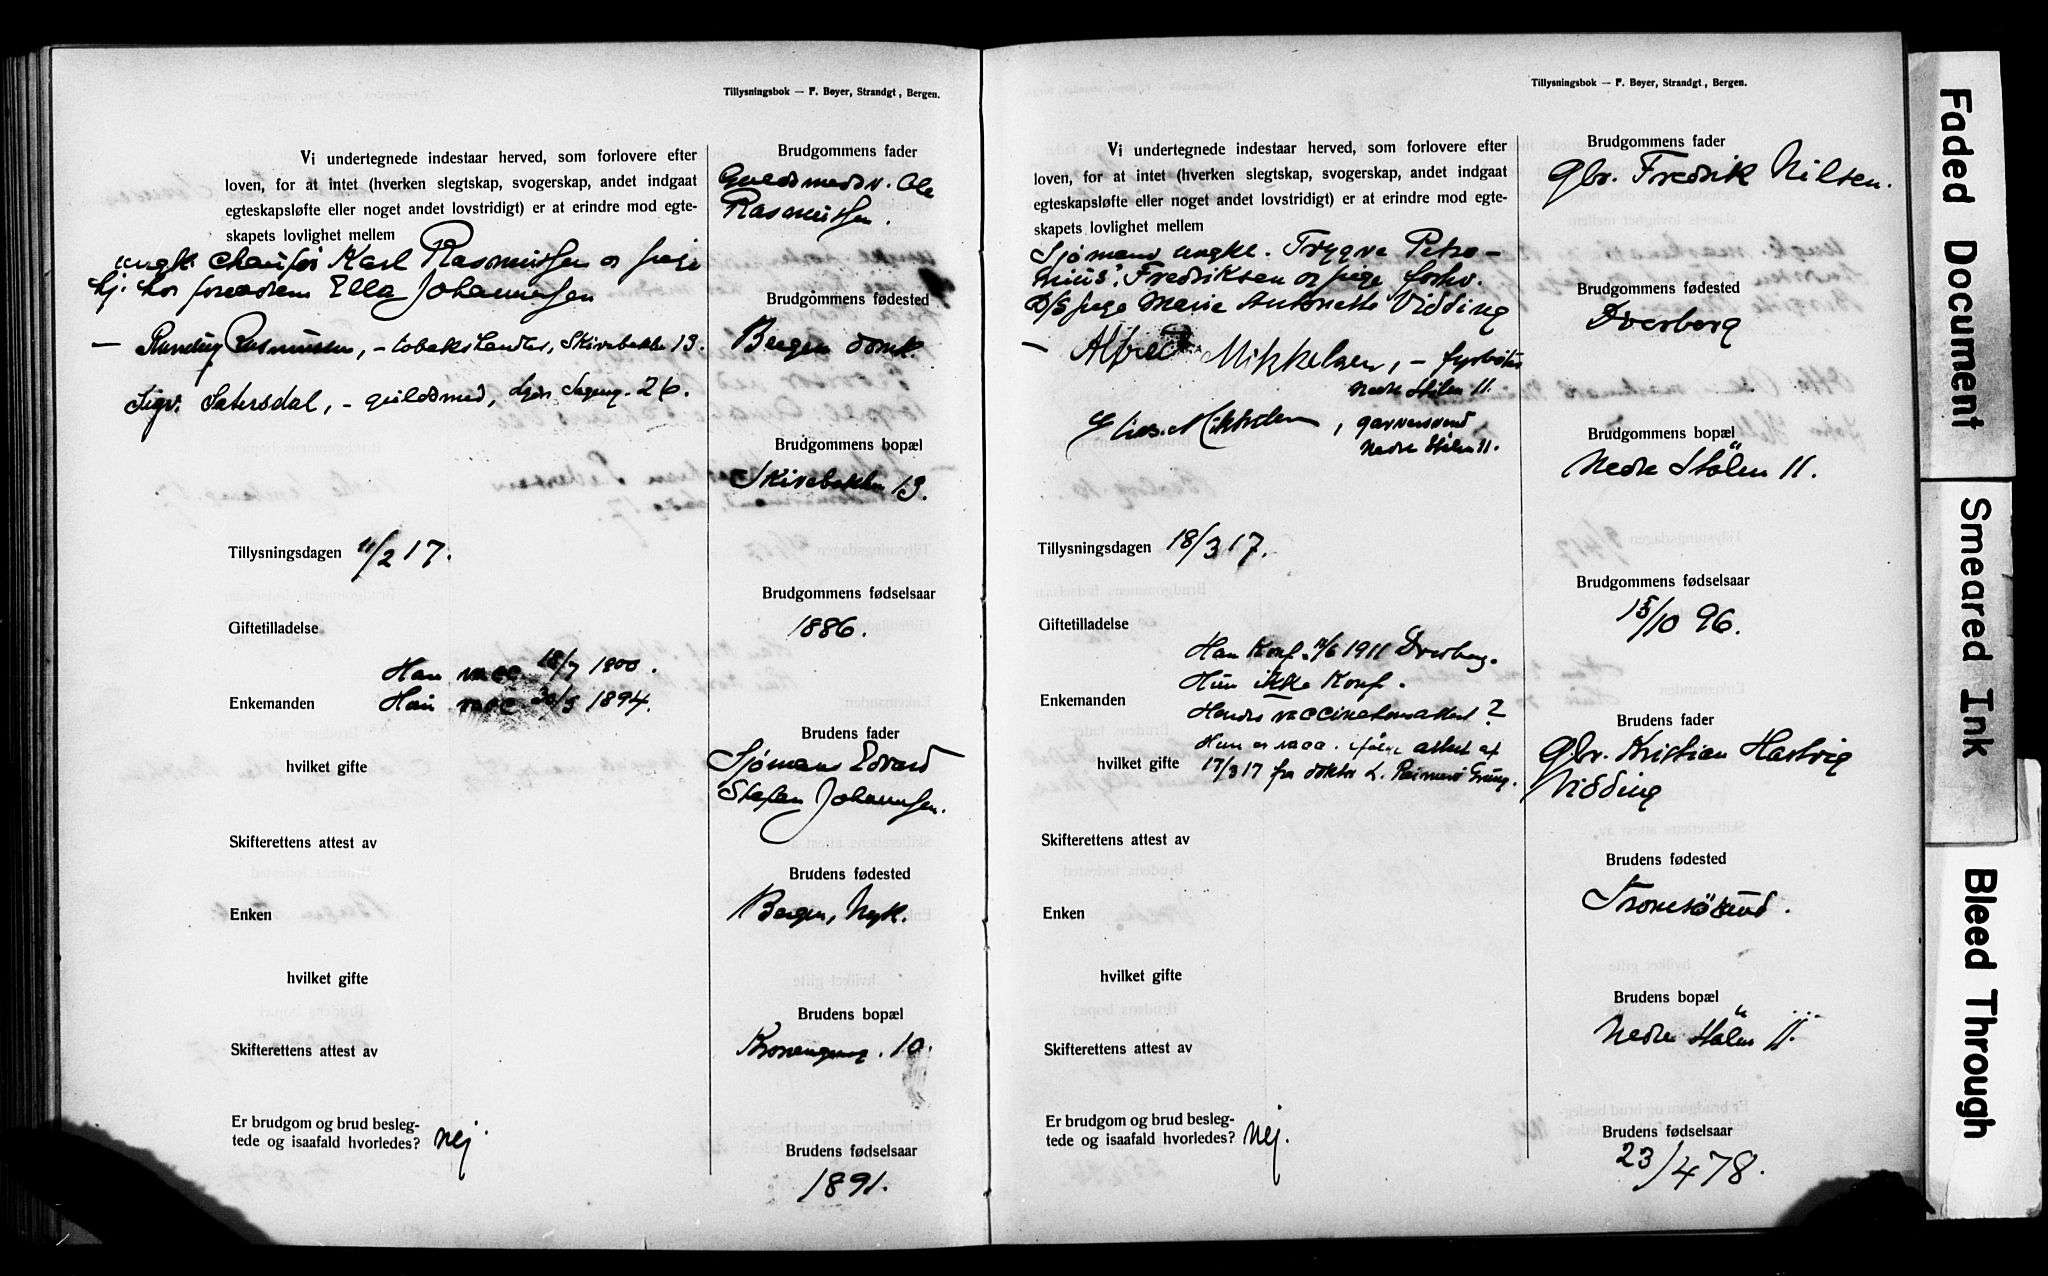 Tillysningsbok — F. Bøyer, Strandgt., Bergen.
Vi undertegnede indestaar herved, som forlovere efter
loven, for at intet (hverken slegtskap, svogerskap, andet indgaat
egteskapsløfte eller noget andet lovstridigt) er at erindre mod egte-
skapets lovlighet mellem
ungk. chaufør Karl Rasmussen og pige
hj. hos forældrene Ella Johannesen
— Rasmussen, – tobakshandler, Skivebakken 13.
Sigv. Sætersdal, – guldsmed, 26.
Tillysningsdagen 11/2 17.
Giftetilladelse
Han vacc 18/7 1900.
Enkemanden Hun vacc 30/5 1894.
hvilket gifte
Skifterettens attest av
Enken
hvilket gifte
Skifterettens attest av
Er brudgom og brud besleg-
tede og isaafald hvorledes? Nej.
Brudgommens fader
Guldsmedsv. Ole
Rasmussen.
Brudgommens fødested
Bergen domk.
Brudgommens bopæl
Skivebakken 13.
Brudgommens fødselsaar
1886.
Brudens fader
Sjømand Edvard
Stefan Johannesen.
Brudens fødested
Bergen, Nyk.
Brudens bopæl
10.
Brudens fødselsaar
1891.
Tillysningsbok — F. Bøyer, Strandgt., Bergen.
Vi undertegnede indestaar herved, som forlovere efter
loven, for at intet (hverken slegtskap, svogerskap, andet indgaat
egteskapsløfte eller noget andet lovstridigt) er at erindre mod egte-
skapets lovlighet mellem
Sjømand ungk. Trygve Petro-
nius Fredriksen og pige forhv.
D/S pige Marie Antonette Vidding
— Alfred Mikkelsen, – fyrbøter
Nedre Stölen 11.
Mikkelsen, garversvend
Nedre Stölen 11.
Tillysningsdagen 18/3 17.
Giftetilladelse
Han Konf. 11/6 1911 Dverberg.
Hun ikke Konf.
Enkemanden
Hendes vaccinationsattest?
Hun er vacc. ifølge attest af
hvilket gifte 17/3 17 fra doktor L. Reimers Grung.
Skifterettens attest av
Enken
hvilket gifte
Skifterettens attest av
Er brudgom og brud besleg-
tede og isaafald hvorledes? Nej.
Brudgommens fader
Gbr. Fredrik Nilsen.
Brudgommens fødested
Dverberg
Brudgommens bopæl
Nedre Stölen 11.
Brudgommens fødselsaar
15/10 96.
Brudens fader
Gbr. Kristian Hartvig
Vidding
Brudens fødested
Tromsösund.
Brudens bopæl
Nedre Stölen 11.
Brudens fødselsaar
23/4 78.
Faded Document
Smeared Ink
Bleed Through